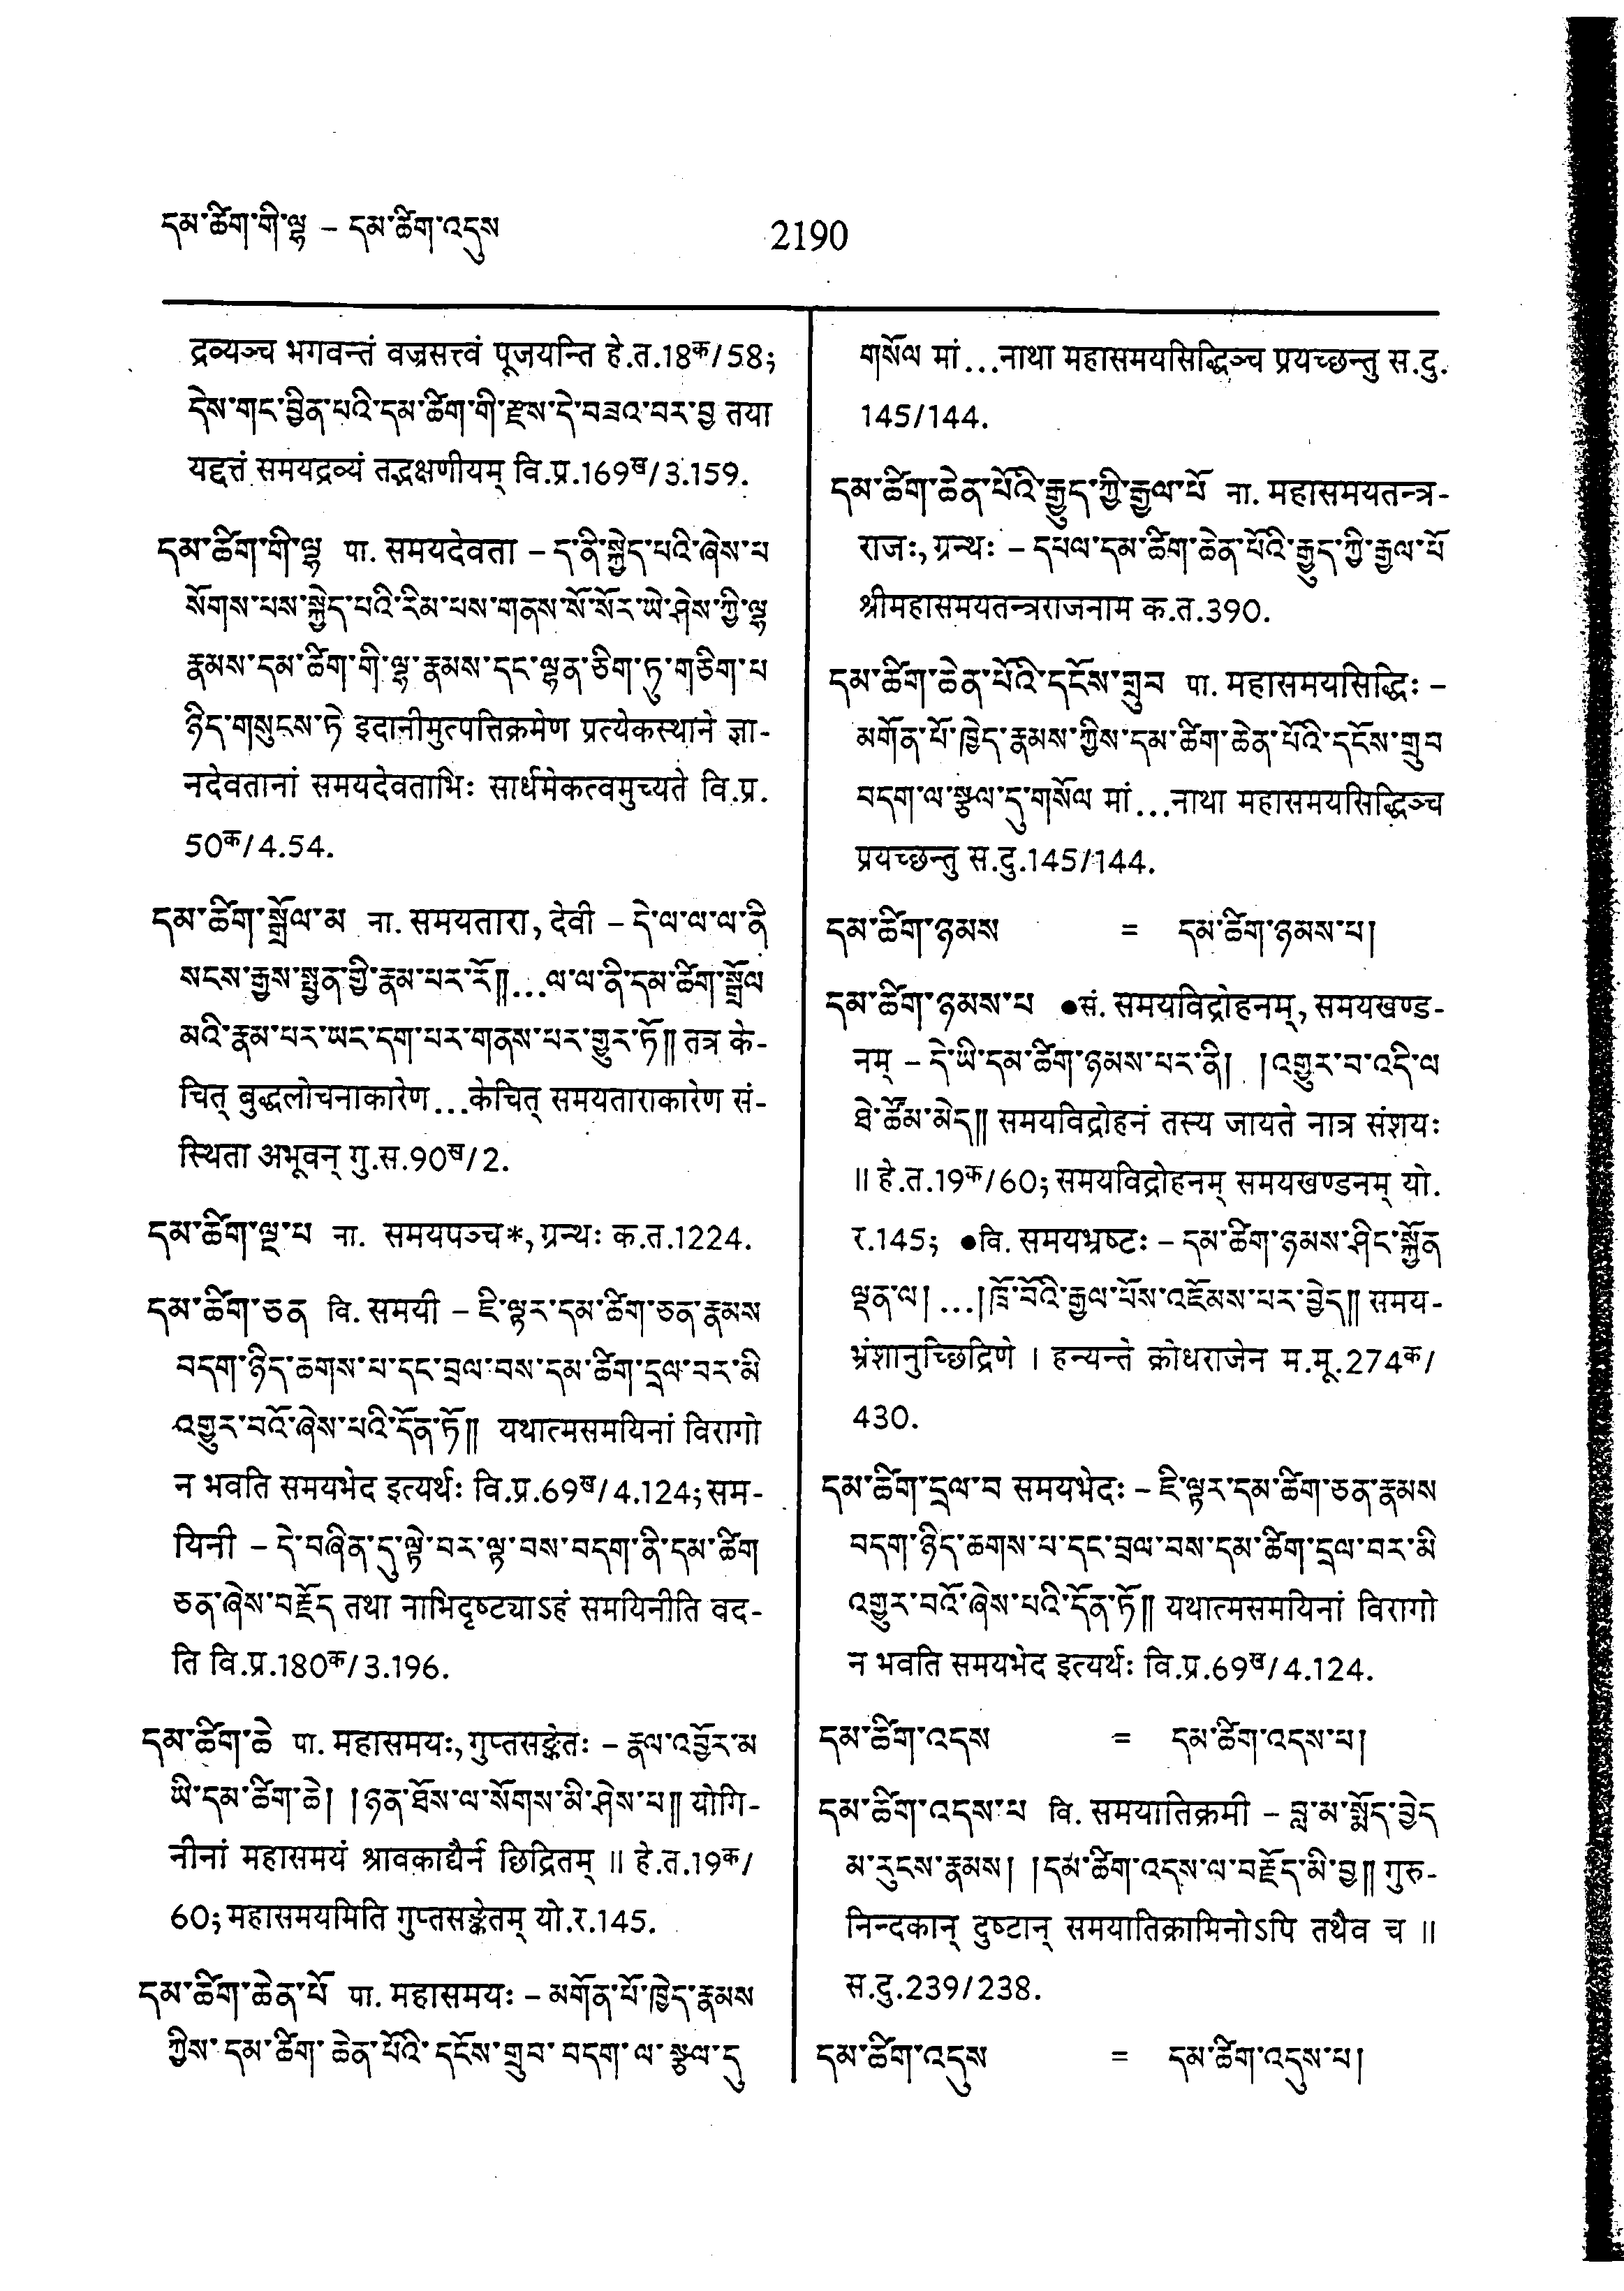 དམ་ཚིག་གི་ལྷ – དམ་ཚིག་འདུས
2190
द्रव्यञ्च भगवन्तं वज्रसत्त्वं पूजयन्ति हे.त.18क/58;
དེས་གང་བྱིན་པའི་དམ་ཚིག་གི་རྫས་དེ་བཟའ་བར་བྱ तया
यद्दत्तं समयद्रव्यं तद्भक्षणीयम् वि.प्र.169ख/3.159.
དམ་ཚིག་གི་ལྷ पा. समयदेवता – ད་ནི་སྐྱེད་པའི་ཞེས་པ
སོགས་པས་སྐྱེད་པའི་རིམ་པས་གནས་སོ་སོར་ཡེ་ཤེས་ཀྱི་ལྷ
རྣམས་དམ་ཚིག་གི་ལྷ་རྣམས་དང་ལྷན་ཅིག་ཏུ་གཅིག་པ
ཉིད་གསུངས་ཏེ इदानीमुत्पत्तिक्रमेण प्रत्येकस्थाने ज्ञा-
नदेवतानां समयदेवताभिः सार्धमेकत्वमुच्यते वि.प्र.
50क/4.54.
དམ་ཚིག་སྒྲོལ་མ ना. समयतारा, देवी – དེ་ལ་ལ་ལ་ནི
སངས་རྒྱས་སྤྱན་གྱི་རྣམ་པར་རོ༎...ལ་ལ་ནི་དམ་ཚིག་སྒྲོལ
མའི་རྣམ་པར་ཡང་དག་པར་གནས་པར་གྱུར་ཏོ༎ तत्र के-
चित् बुद्धलोचनाकारेण...केचित् समयताराकारेण सं-
स्थिता अभूवन् गु.स.90ख/2.
དམ་ཚིག་ལྔ་པ ना. समयपञ्च*, ग्रन्थः क.त.1224.
དམ་ཚིག་ཅན वि. समयी – ཇི་ལྟར་དམ་ཚིག་ཅན་རྣམས
བདག་ཉིད་ཆགས་པ་དང་བྲལ་བས་དམ་ཚིག་དྲལ་བར་མི
འགྱུར་བའོ་ཞེས་པའི་དོན་ཏོ༎ यथात्मसमयिनां विरागो
न भवति समयभेद इत्यर्थः वि.प्र.69ख/4.124; सम-
यिनी – དེ་བཞིན་དུ་ལྟེ་བར་ལྟ་བས་བདག་ནི་དམ་ཚིག
ཅན་ཞེས་བརྗོད तथा नाभिदृष्ट्याऽहं समयिनीति वद-
ति वि.प्र.180क/3.196.
དམ་ཚིག་ཆེ पा. महासमयः, गुप्तसङ्केतः – རྣལ་འབྱོར་མ
ཡི་དམ་ཚིག་ཆེ། །ཉན་ཐོས་ལ་སོགས་མི་ཤེས་པ༎ योगि-
नीनां महासमयं श्रावकाद्यैर्न छिद्रितम् ॥ हे.त.19क/
60; महासमयमिति गुप्तसङ्केतम् यो.र.145.
དམ་ཚིག་ཆེན་པོ पा. महासमयः – མགོན་པོ་ཁྱེད་རྣམས
ཀྱིས་དམ་ཚིག་ཆེན་པོའི་དངོས་གྲུབ་བདག་ལ་སྩལ་དུ
གསོལ मां...नाथा महासमयसिद्धिञ्च प्रयच्छन्तु स.दु.
145/144.
དམ་ཚིག་ཆེན་པོའི་རྒྱུད་ཀྱི་རྒྱལ་པོ ना. महासमयतन्त्र-
राजः, ग्रन्थः – དཔལ་དམ་ཚིག་ཆེན་པོའི་རྒྱུད་ཀྱི་རྒྱལ་པོ
श्रीमहासमयतन्त्रराजनाम क.त.390.
དམ་ཚིག་ཆེན་པོའི་དངོས་གྲུབ पा. महासमयसिद्धिः –
མགོན་པོ་ཁྱེད་རྣམས་ཀྱིས་དམ་ཚིག་ཆེན་པོའི་དངོས་གྲུབ
བདག་ལ་སྩལ་དུ་གསོལ मां...नाथा महासमयसिद्धिञ्च
प्रयच्छन्तु स.दु.145/144.
དམ་ཚིག་ཉམས = དམ་ཚིག་ཉམས་པ།
དམ་ཚིག་ཉམས་པ ●सं. समयविद्रोहनम्, समयखण्ड-
नम् – དེ་ཡི་དམ་ཚིག་ཉམས་པར་ནི། །འགྱུར་བ་འདི་ལ
ཐེ་ཚོམ་མེད༎ समयविद्रोहनं तस्य जायते नात्र संशयः
॥ हे.त.19क/60; समयविद्रोहनम् समयखण्डनम् यो.
र.145; ●वि. समयभ्रष्टः – དམ་ཚིག་ཉམས་ཤིང་སྐྱོན
ལྡན་ལ།...།ཁྲོ་བོའི་རྒྱལ་པོས་འཇོམས་པར་བྱེད༎ समय-
भ्रंशानुच्छिद्रिणे । हन्यन्ते क्रोधराजेन म.मू.274क/
430.
དམ་ཚིག་དྲལ་བ समयभेदः – ཇི་ལྟར་དམ་ཚིག་ཅན་རྣམས
བདག་ཉིད་ཆགས་པ་དང་བྲལ་བས་དམ་ཚིག་དྲལ་བར་མི
འགྱུར་བའོ་ཞེས་པའི་དོན་ཏོ༎ यथात्मसमयिनां विरागो
न भवति समयभेद इत्यर्थः वि.प्र.69ख/4.124.
དམ་ཚིག་འདས = དམ་ཚིག་འདས་པ།
དམ་ཚིག་འདས་པ वि. समयातिक्रमी – བླ་མ་སྨོད་བྱེད
མ་རུངས་རྣམས། །དམ་ཚིག་འདས་ལ་བརྗོད་མི་བྱ༎ गुरु-
निन्दकान् दुष्टान् समयातिक्रामिनोऽपि तथैव च ॥
स.दु.239/238.
དམ་ཚིག་འདུས = དམ་ཚིག་འདུས་པ།